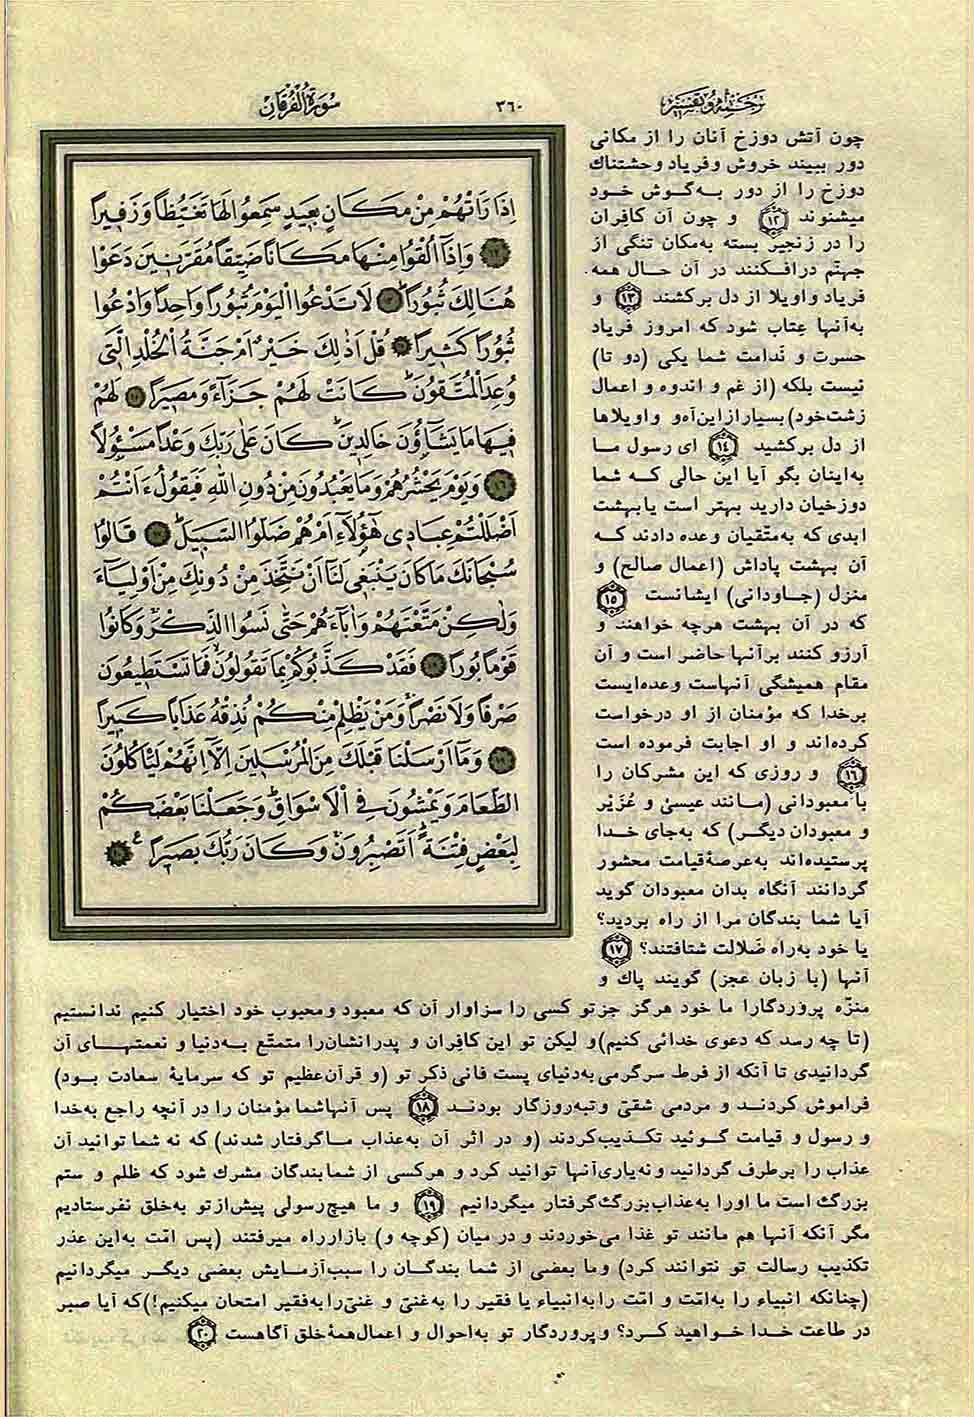 ترجمه و تفسیر
۳۶۰
سورة الفرقان
اِذَا رَاَتْهُمْ مِنْ مَكَانٍ بَعِيدٍ سَمِعُوا لَهَا تَغَيُّظاً وَزَفِيراً
﴿۱۲﴾ وَاِذَا اُلْقُوا مِنْهَا مَكَاناً ضَيِّقاً مُقَرَّنِينَ دَعَوْا
هُنَالِكَ ثُبُوراً ﴿۱۳﴾ لَا تَدْعُوا الْيَوْمَ ثُبُوراً وَاحِداً وَادْعُوا
ثُبُوراً كَثِيراً ﴿۱۴﴾ قُلْ اَذٰلِكَ خَيْرٌ اَمْ جَنَّةُ الْخُلْدِ الَّتِي
وُعِدَ الْمُتَّقُونَ كَانَتْ لَهُمْ جَزَاءً وَمَصِيراً ﴿۱۵﴾ لَهُمْ
فِيهَا مَا يَشَاؤُنَ خَالِدِينَ كَانَ عَلٰى رَبِّكَ وَعْداً مَسْؤُلاً
﴿۱۶﴾ وَيَوْمَ يَحْشُرُهُمْ وَمَا يَعْبُدُونَ مِنْ دُونِ اللّٰهِ فَيَقُولُ ءَاَنْتُمْ
اَضْلَلْتُمْ عِبَادِي هٰؤُلَاءِ اَمْ هُمْ ضَلُّوا السَّبِيلَ ﴿۱۷﴾ قَالُوا
سُبْحَانَكَ مَا كَانَ يَنْبَغِي لَنَا اَنْ نَتَّخِذَ مِنْ دُونِكَ مِنْ اَوْلِيَاءَ
وَلٰكِنْ مَتَّعْتَهُمْ وَاٰبَاءَهُمْ حَتّٰى نَسُوا الذِّكْرَ وَكَانُوا
قَوْماً بُوراً ﴿۱۸﴾ فَقَدْ كَذَّبُوكُمْ بِمَا تَقُولُونَ فَمَا تَسْتَطِيعُونَ
صَرْفاً وَلَا نَصْراً وَمَنْ يَظْلِمْ مِنْكُمْ نُذِقْهُ عَذَاباً كَبِيراً
﴿۱۹﴾ وَمَا اَرْسَلْنَا قَبْلَكَ مِنَ الْمُرْسَلِينَ اِلَّا اِنَّهُمْ لَيَاْكُلُونَ
الطَّعَامَ وَيَمْشُونَ فِي الْاَسْوَاقِ وَجَعَلْنَا بَعْضَكُمْ
لِبَعْضٍ فِتْنَةً اَتَصْبِرُونَ وَكَانَ رَبُّكَ بَصِيراً ع ﴿۲۰﴾
چون آتش دوزخ آنان را از مکانی
دور ببیند خروش و فریاد وحشتناك
دوزخ را از دور به‌گوش خود
میشنوند ﴿۱۲﴾ و چون آن کافران
را در زنجیر بسته به‌مکان تنگی از
جهنّم درافکنند در آن حال همه
فریاد واویلا از دل برکشند ﴿۱۳﴾ و
به‌آنها عتاب شود که امروز فریاد
حسرت و ندامت شما یکی (دو تا)
نیست بلکه (از غم و اندوه و اعمال
زشت‌خود) بسیار از این‌آه‌و واویلاها
از دل برکشید ﴿۱۴﴾ ای رسول ما
به‌اینان بگو آیا این حالی که شما
دوزخیان دارید بهتر است یا بهشت
ابدی که به‌متّقیان وعده دادند که
آن بهشت پاداش (اعمال صالح) و
منزل (جاودانی) ایشانست ﴿۱۵﴾
که در آن بهشت هرچه خواهند و
آرزو کنند بر آنها حاضر است و آن
مقام همیشگی آنهاست وعده‌ایست
برخدا که مؤمنان از او درخواست
کرده‌اند و او اجابت فرموده است
﴿۱۶﴾ و روزی که این مشرکان را
با معبودانی (مانند عیسیٰ و عُزَیْر
و معبودان دیگر) که به‌جای خدا
پرستیده‌اند به‌عرصهٔ قیامت محشور
گردانند آنگاه بدان معبودان گوید
آیا شما بندگان مرا از راه بردید؟
یا خود به‌راه ضَلالت شتافتند؟ ﴿۱۷﴾
آنها (با زبان عجز) گویند پاك و
منزّه پروردگارا ما خود هرگز جزتو کسی را سزاوار آن که معبود و محبوب خود اختیار کنیم ندانستیم
(تا چه رسد که دعوی خدائی کنیم) و لیکن تو این کافران و پدرانشان‌را متمتّع به‌دنیا و نعمتهای آن
گردانیدی تا آنکه از فرط سرگرمی به‌دنیای پست فانی ذکر تو (و قرآن عظیم تو که سرمایهٔ سعادت بود)
فراموش کردند و مردمی شقیّ و تبه‌روزگار بودند ﴿۱۸﴾ پس آنها شما مؤمنان را در آنچه راجع به‌خدا
و رسول و قیامت گوئید تکذیب کردند (و در اثر آن به‌عذاب ما گرفتار شدند) که نه شما توانید آن
عذاب را برطرف گردانید و نه‌یاری آنها توانید کرد و هرکسی از شما بندگان مشرك شود که ظلم و ستم
بزرگ است ما اورا به‌عذاب بزرگ گرفتار میگردانیم ﴿۱۹﴾ و ما هیچ رسولی پیش‌از تو به‌خلق نفرستادیم
مگر آنکه آنها هم مانند تو غذا می‌خوردند و در میان (کوچه و) بازار راه میرفتند (پس امّت به‌این عذر
تکذیب رسالت تو نتوانند کرد) و ما بعضی از شما بندگان را سبب‌آزمایش بعضی دیگر میگردانیم
(چنانکه انبیاء را به‌امّت و امّت را به‌انبیاء یا فقیر را به‌غنیّ و غنیّ را به‌فقیر امتحان میکنیم!) که آیا صبر
در طاعت خدا خواهید کرد؟ و پروردگار تو به‌احوال و اعمال همهٔ خلق آگاهست ﴿۲۰﴾